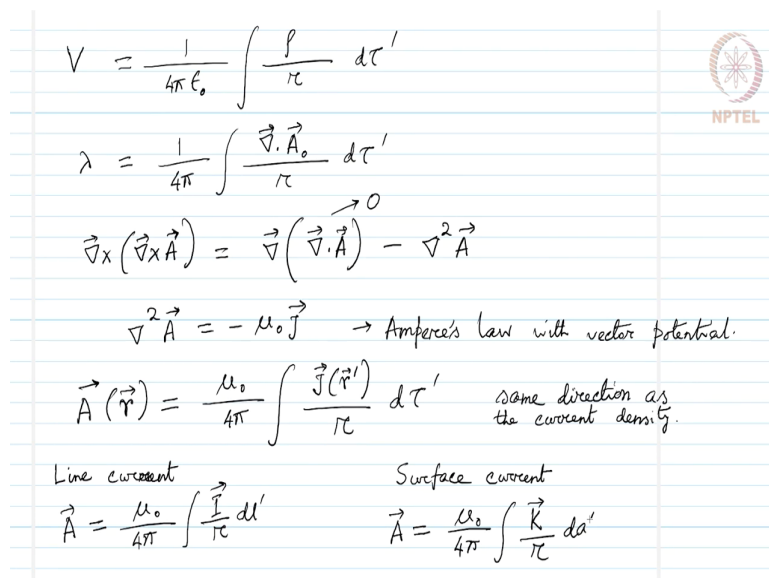 V = 1/(4π ε₀) ∫ ρ/r dτ'
NPTEL
λ = 1/(4π) ∫ (∇⃗ · A⃗₀)/r dτ'
→ 0
∇⃗ × (∇⃗ × A⃗) = ∇⃗ (∇⃗ · A⃗) − ∇² A⃗
∇² A⃗ = − μ₀ J⃗ → Ampere's law with vector potential.
A⃗ (r⃗) = μ₀/(4π) ∫ J⃗(r⃗')/r dτ' same direction as
the current density.
Line current Surface current
A⃗ = μ₀/(4π) ∫ I⃗/r dl' A⃗ = μ₀/(4π) ∫ K⃗/r da'